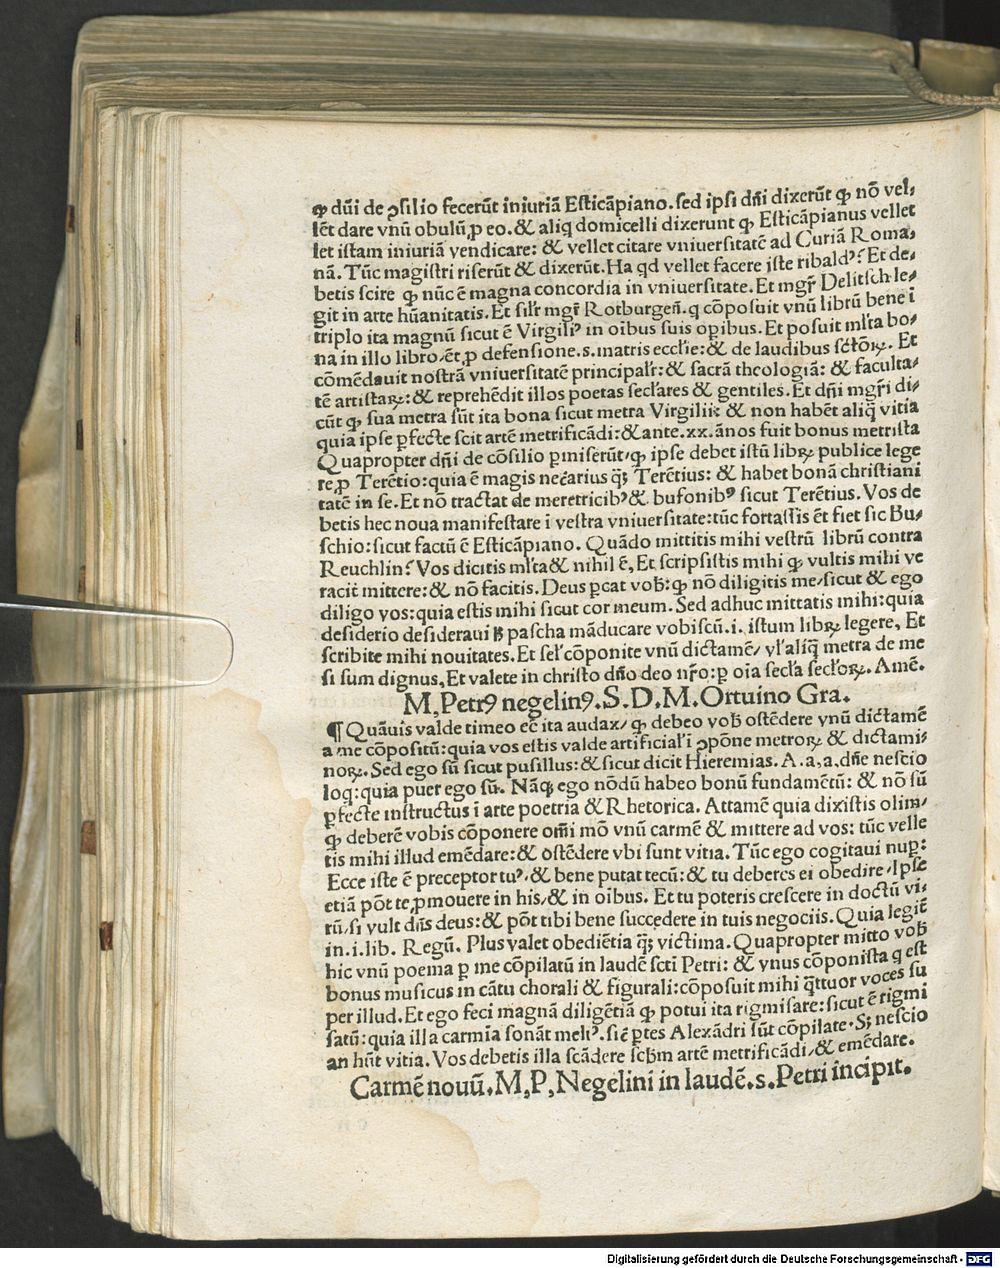 ꝙ dn̄i de ꝯsilio fecerūt iniuriā Esticāpiano. sed ipsi dn̄i dixerūt ꝙ nō vel⸗
lēt dare vnū obulū ꝓ eo. & aliq domicelli dixerunt ꝙ Esticāpianus vellet
let istam iniuriā vendicare: & vellet citare vniuersitatē ad Curiā Roma⸗
nā. Tūc magistri riserūt & dixerūt. Ha qd vellet facere iste ribaldꝰ? Et de⸗
betis scire ꝙ nūc ē magna concordia in vniuersitate. Et mgr̄ Delitsch le⸗
git in arte hūanitatis. Et silr̄ mgr̄ Rotburgen̄. q cōposuit vnū librū bene i
triplo ita magnū sicut ē Virgiliꝰ in oibus suis oꝑibus. Et posuit ml̄ta bo⸗
na in illo libro/ ēt ꝓ defensione .s. matris eccl̄ie: & de laudibus sc̄toꝝ. Et
cōmēdauit nostrā vniuersitatē principalr̄: & sacrā theologiā: & faculta⸗
tē artistaꝝ: & reprehēdit illos poetas secl̄ares & gentiles. Et dn̄i mgr̄i di⸗
cūt ꝙ sua metra sūt ita bona sicut metra Virgilii: & non habēt aliq̄ vitia
quia ipse ꝑfecte scit artē metrificādi: & ante .xx. ānos fuit bonus metrista
Quapropter dn̄i de cōsilio ꝑmiserūt/ ꝙ ipse debet istū libꝝ publice lege
re ꝓ Terētio: quia ē magis nec̄arius qꝫ Terētius: & habet bonā christiani
tatē in se. Et nō tractat de meretricibꝰ & bufonibꝰ sicut Terētius. Vos de
betis hec noua manifestare i vestra vniuersitate: tūc fortassis ēt fiet sic Bu⸗
schio: sicut factū ē Esticāpiano. Quādo mittitis mihi vestrū librū contra
Reuchlin? Vos dicitis ml̄ta & nihil ē, Et scripsistis mihi ꝙ vultis mihi ve
racit̄ mittere: & nō facitis. Deus ꝑcat vob̄: ꝙ nō diligitis me/ sicut & ego
diligo vos: quia estis mihi sicut cor meum. Sed adhuc mittatis mihi: quia
desiderio desideraui h̄ pascha māducare vobiscū .i. istum libꝝ legere, Et
scribite mihi nouitates. Et sel̄ cōponite vnū dictamē/ vl̄ aliq̄ metra de me
si sum dignus, Et valete in christo dn̄o deo nr̄o: ꝑ oia secl̄a secl̄oꝝ. Amē.
M, Petrꝰ negelinꝰ. S. D. M. Ortuino Gra.
¶ Quāuis valde timeo eē ita audax/ ꝙ debeo vob̄ ostēdere vnū dictamē
a me cōpositū: quia vos estis valde artificial̄ i ꝯpōne metroꝝ & dictami⸗
noꝝ. Sed ego sū sicut pusillus: & sicut dicit Hieremias. A. a, a, dn̄e nescio
loq: quia puer ego sū. Nāqꝫ ego nōdū habeo bonū fundamētū: & nō sū
ꝑfecte instructus i arte poetria & Rhetorica. Attamē quia dixistis olim/
ꝙ deberē vobis cōponere om̄i mō vnū carmē & mittere ad vos: tūc velle
tis mihi illud emēdare: & ostēdere vbi sunt vitia. Tūc ego cogitaui nuꝑ:
Ecce iste ē preceptor tuꝰ, & bene putat tecū: & tu deberes ei obedire, Ipse
etiā pōt te ꝓmouere in his/ & in oibus. Et tu poteris crescere in doctū vi⸗
rū/ si vult dn̄s deus: & pōt tibi bene succedere in tuis negociis. Quia legit̄
in .i. lib. Regū. Plus valet obediētia qꝫ victima. Quapropter mitto vob̄
hic vnū poema ꝑ me cōpilatū in laudē sc̄ti Petri: & vnus cōponista q est
bonus musicus in cātu chorali & figurali: cōposuit mihi q̄ttuor voces su
per illud. Et ego feci magnā diligētiā ꝙ potui ita rigmisare: sicut ē rigmi
satū: quia illa carmīa sonāt melꝰ. sic̄ ꝑtes Alexādri sūt cōpilate. Sꝫ nescio
an hn̄t vitia. Vos debetis illa scādere scb̄m artē metrificādi/ & emēdare.
Carmē nouū. M, P, Negelini in laudē .s. Petri incipit.
Digitalisierung gefördert durch die Deutsche Forschungsgemeinschaft - DFG